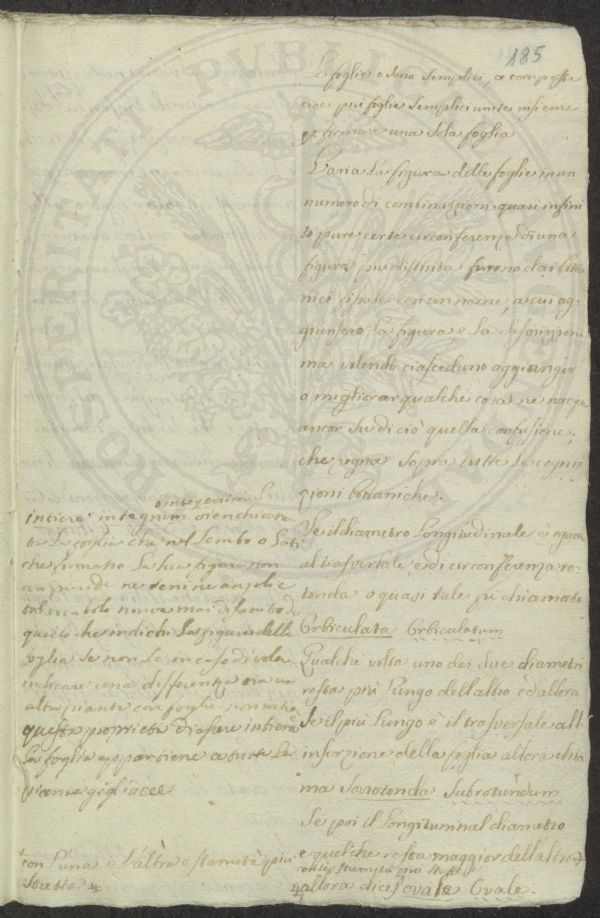 185
Le foglie o sono semplici, o composte
cioè più foglie semplici unite insieme
formare una sola foglia
Varia la figura delle foglie in un
numero di combinazioni quasi infini
to pure certe circonferenze di una
figura più distinta furono dai bota
nici fissate con un nome, a cui ag-
giunsero la figura, e la descrizione.
ma volendo ciascheduno aggiongier
o migliorar qualche cosa ne nacque
ancor su di ciò quella confusione.
che regna sopra tutte le cogni
zioni botaniche.
Se il diametro longitudinale è egual
al trasversale, e di circonferenza ro-
tonda o quasi tale fù chiamata
Orbiculata Orbiculatum
Qualche volta uno dei due diametri
resta più lungo dell'altro ed allora
se il più lungo è il trasversale all
inserzione della foglia allora chia
ma Sorotonda Subrotundum
Se poi il longitudinal diametro
e quelche resta maggior dell'altro
con le stremità più strette
allora dicesi ovale Ovale.
o integerrima
intiera integrum
la foglia che nel lembo o lati
che rimasto la sua figura non
ne denti ne angoli e
non mai di lembo
questo che indichi la figura della
foglia se non le in caso di voler
indicare una differenza
altra pianta con foglie
questa proprietà di essere intiera
la foglia appartiene a tutte le
piante gigliacee
con l'una e l'altra estremità più
stretta
PROSPERITATI PVBLICAE